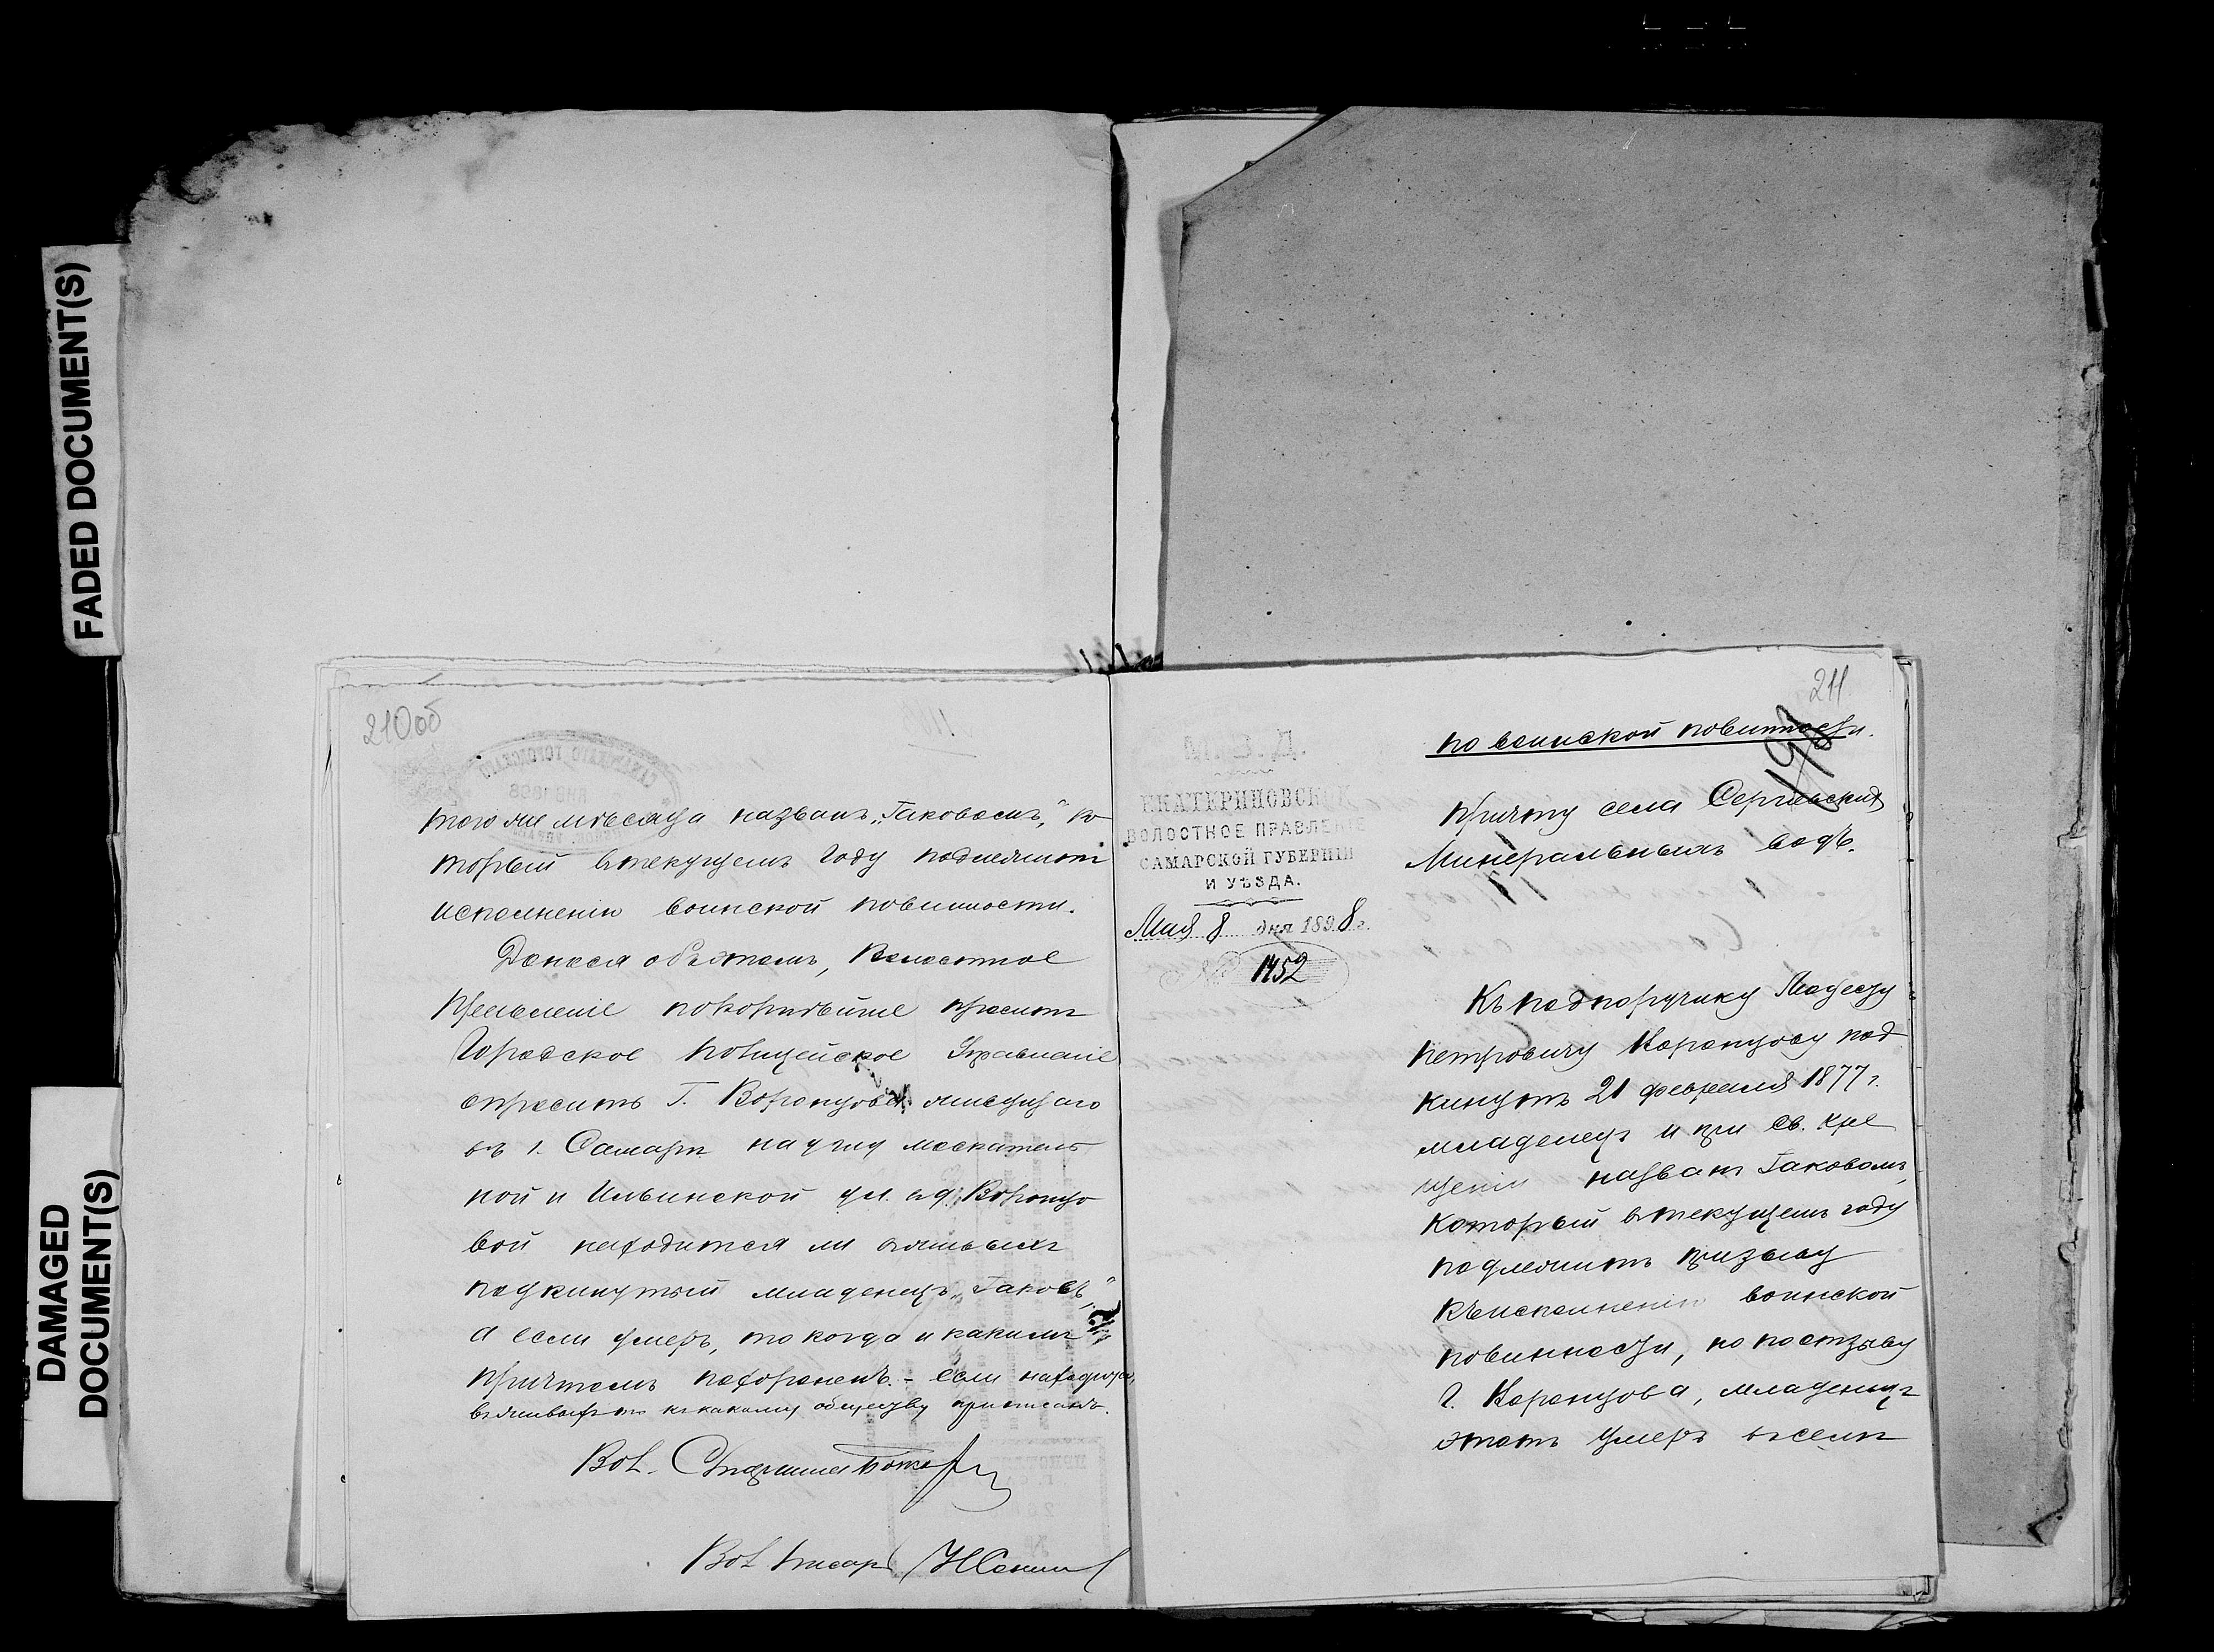 FADED DOCUMENT(S)
DAMAGED
DOCUMENT(S)
210об
того же мѣсяца названъ „Іаковомъ“, ко
торый втекущемъ году подлежитъ
исполненію воинской повинности.
Донося объэтомъ, Волостное
Правленіе покорнѣйше проситъ
Городское Полицейское Управленіе
спросить Г. Воронцова живущаго
въ г. Самарѣ на углу Москатель
ной и Ильинской ул. въ д. Воронцо
вой находится ли вживыхъ
подкинутый младенецъ „Іаковъ“,
а если умеръ, то когда и какимъ
причтомъ похороненъ. - если находится
вживыхъ то къ какому обществу приписанъ.
Вол. Старшина
Вол. писарь
211
198
по воинской повинности.
М. В. Д.
ЕКАТЕРИНОВСКОЕ
ВОЛОСТНОЕ ПРАВЛЕНІЕ
САМАРСКОЙ ГУБЕРНІИ
И УѢЗДА.
Мая 8 дня 1898 г.
№ 1452
Причту села Сергіевскихъ
Минеральныхъ водъ.
Къ подпоручику Модесту
Петровичу Воронцову под
кинутъ 21 февраля 1877 г.
младенецъ и при св. кре
щеніи названъ Іаковомъ,
который втекущемъ году
подлежитъ призыву
къисполненію воинской
повинности, но поотзыву
г. Воронцова, младенецъ
этотъ умеръ вселѣ